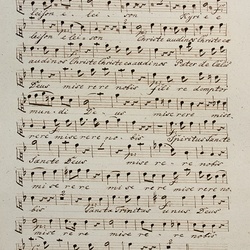 leison e lei son Kyri e
leison e lei son Christe audi nos Christe ex
audi nos Christe Christe exaudi nos Pater de Caelis
Deus mise rere nobis fili redemptor
mun di De us mise rere mise
rere mise rere no bis Spiritus Sancte
Sancte Deus mise re re nobis
mise re re mise re re mise re re no
bis Sancta trinitas unus Deus
mise re re mise re re nobis